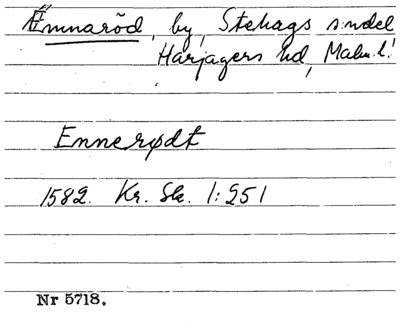 Emmaröd, by, Stehags s:ndel
Harjagers hd, Malm. l.
Ennerødt
1582. Kr. Sk. 1:251
Nr 5718.